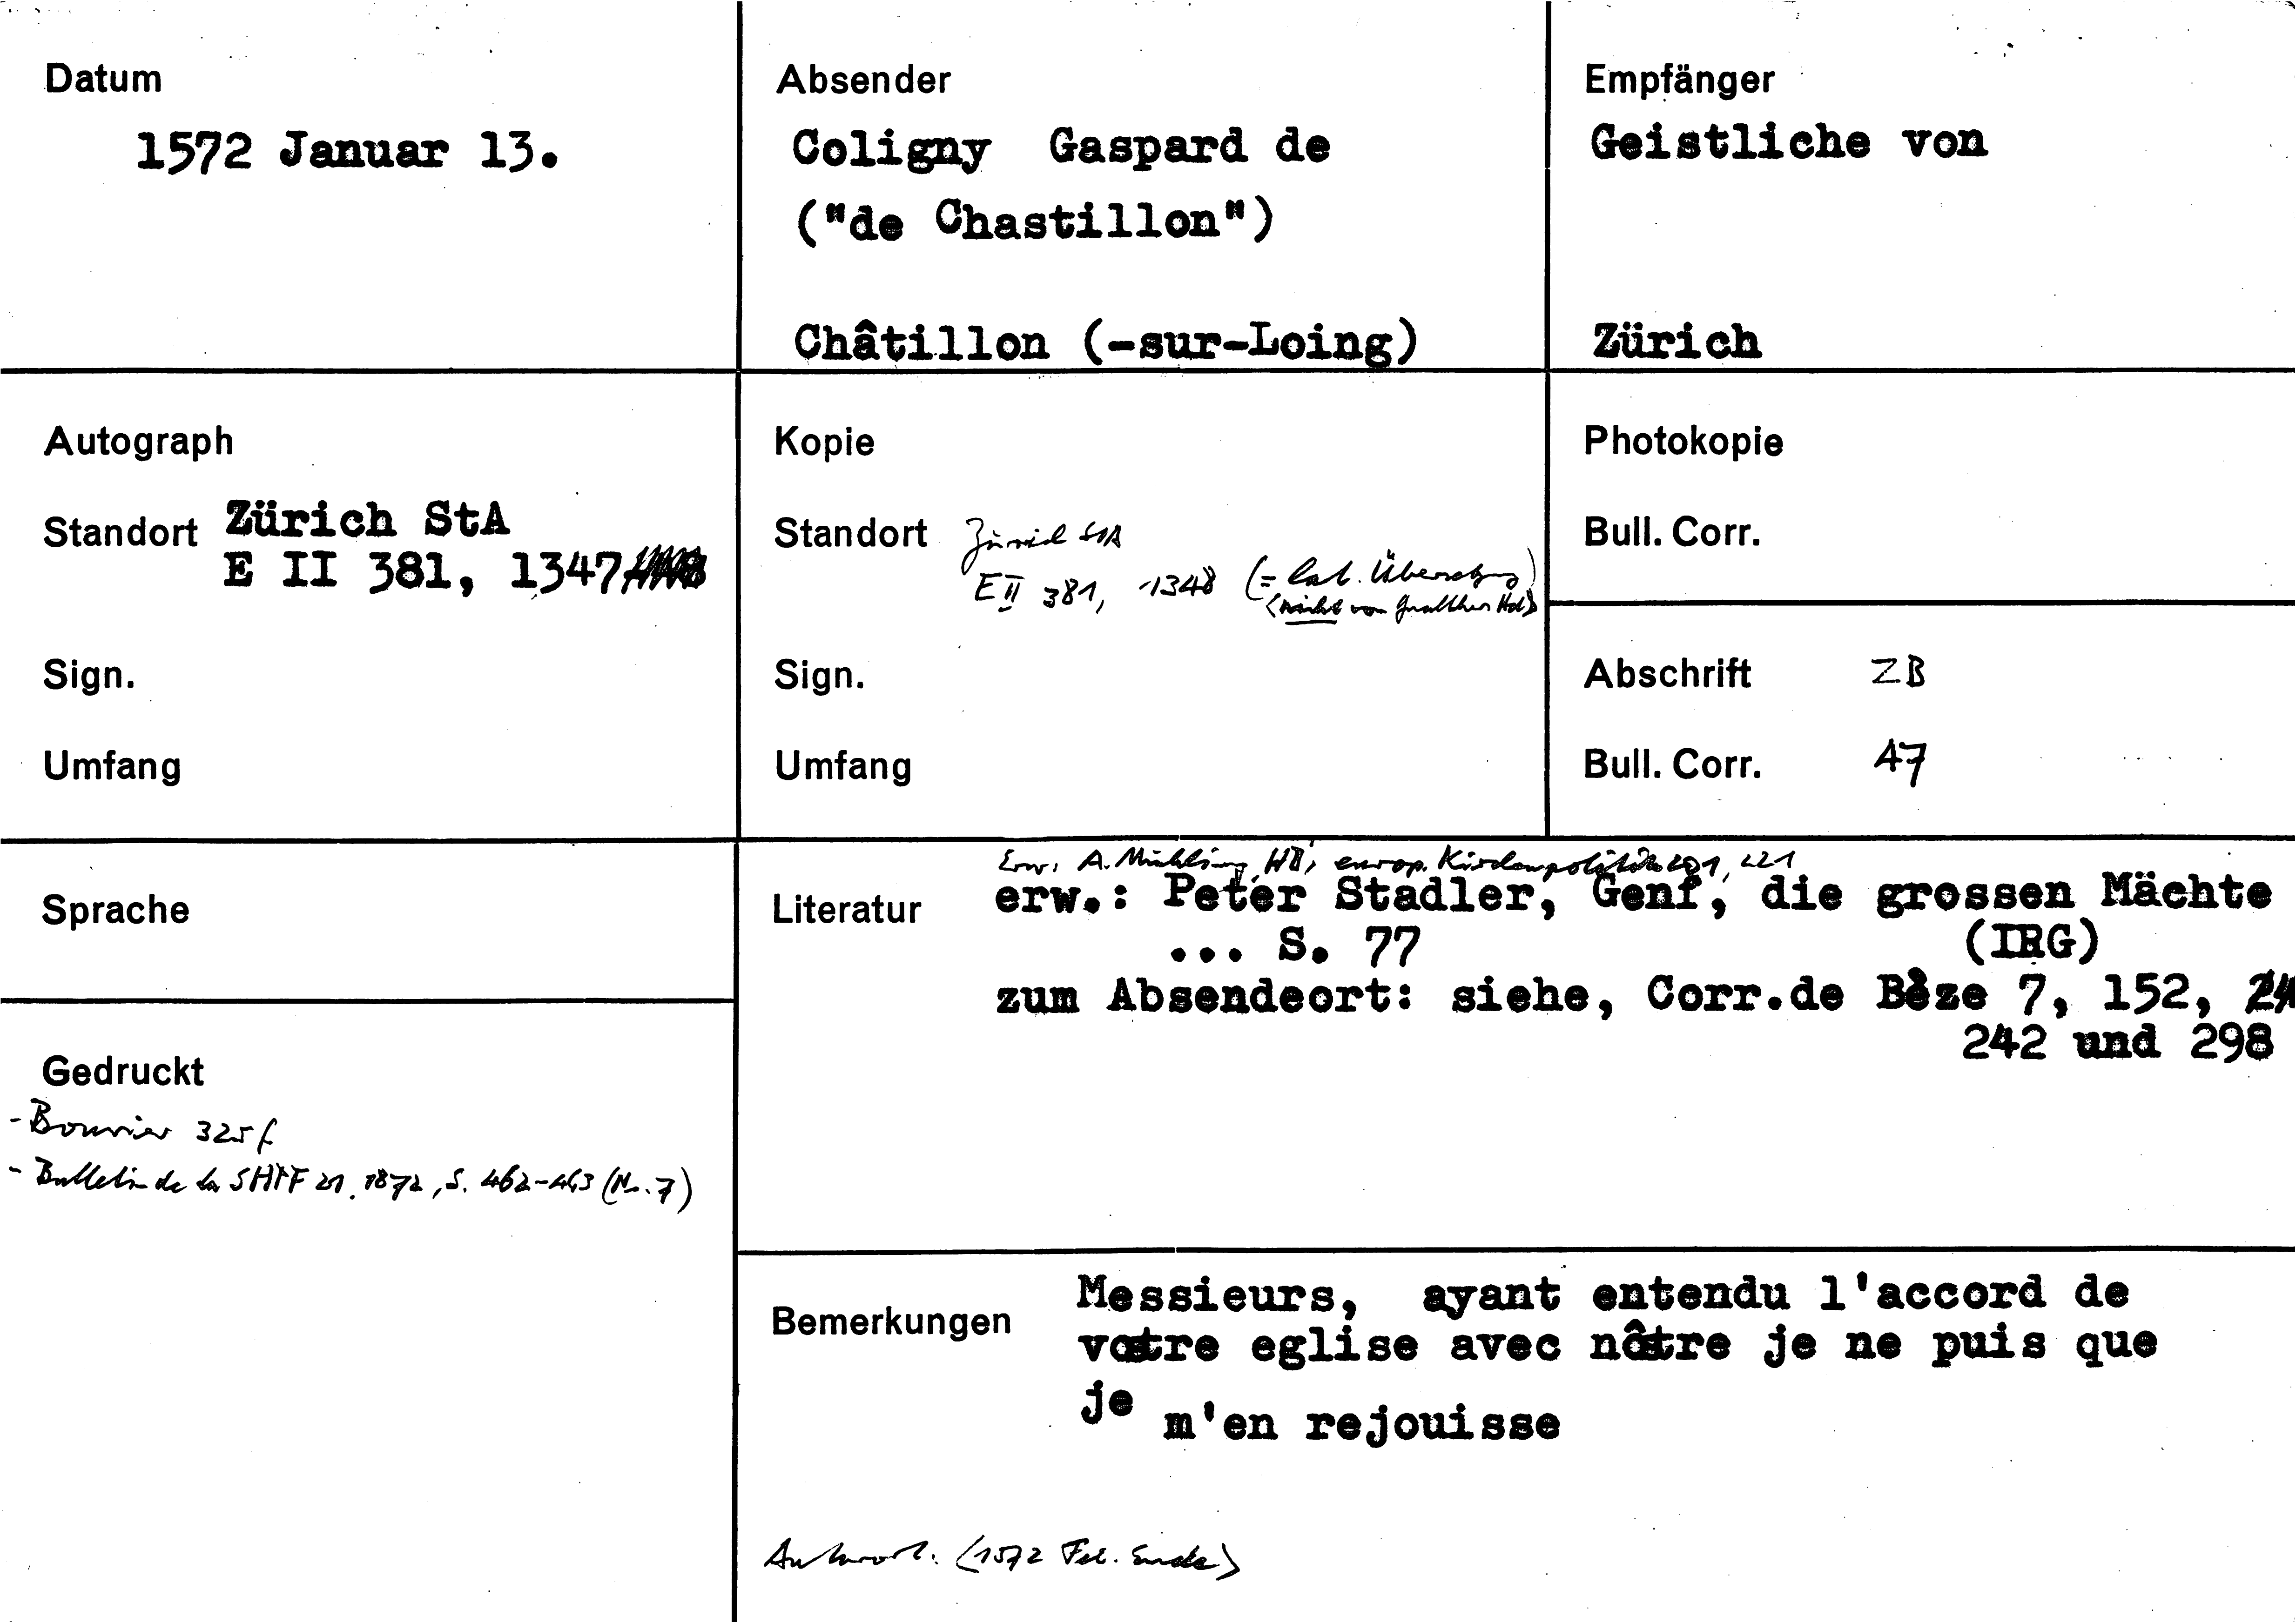 Datum
1572 Januar 13.
Absender
Coligny Gaspard de
("de Chastillon")
Châtillon (-sur-Loing)
Empfänger
Geistliche von
Zürich
Autograph
Standort Zürich StA
E II 381, 1347
Sign.
Umfang
Kopie
Standort Zürich StA
E II 381, 1348 (= lat. Übersetzg)
<nicht von Gwalther Hd>
Sign.
Umfang
Photokopie
Bull. Corr.
Abschrift ZB
Bull. Corr. 47
Sprache
Gedruckt
- Bouvier 325 f
- Bulletin de la SHPF 21. 1872, S. 462-463 (Nr. 7)
Erw. A. Mühling, HB, europ. Kirchenpolitik 201, 221
Literatur erw.: Peter Stadler, Genf, die grossen Mächte
... S. 77 (IRG)
zum Absendeort: siehe, Corr.de Bèze 7, 152,
242 und 298
Bemerkungen Messieurs, ayant entendu l'accord de
votre eglise avec nôtre je ne puis que
je m'en rejouisse
Antwort: <1572 Feb. Ende>